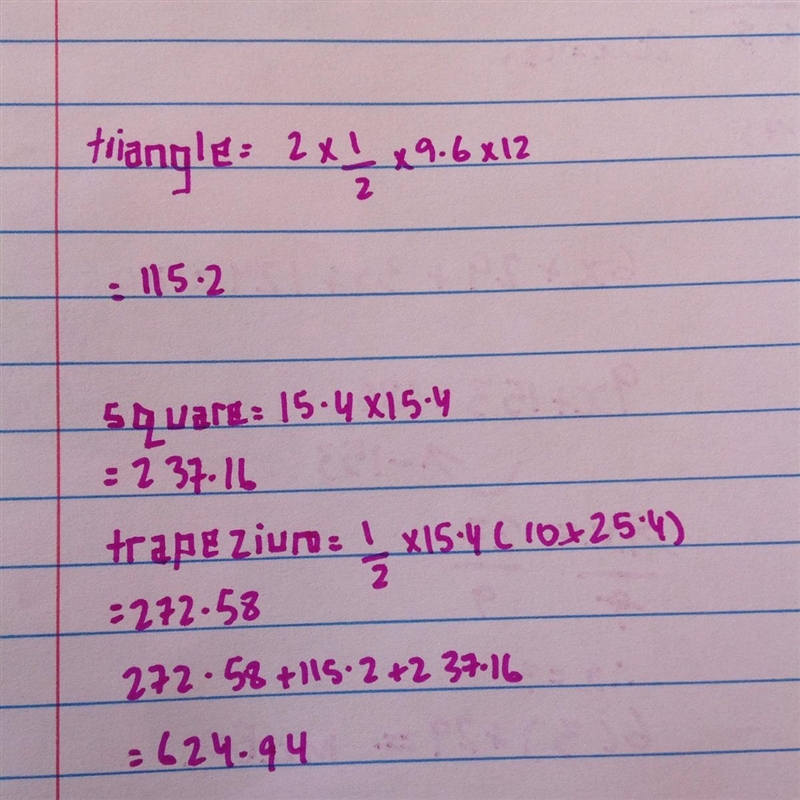 triangle= 2 × 1/2 × 9.6 × 12
= 115.2
square= 15.4 × 15.4
= 237.16
trapezium= 1/2 × 15.4 ( 10 + 25.4)
= 272.58
272.58 + 115.2 + 237.16
= 624.94